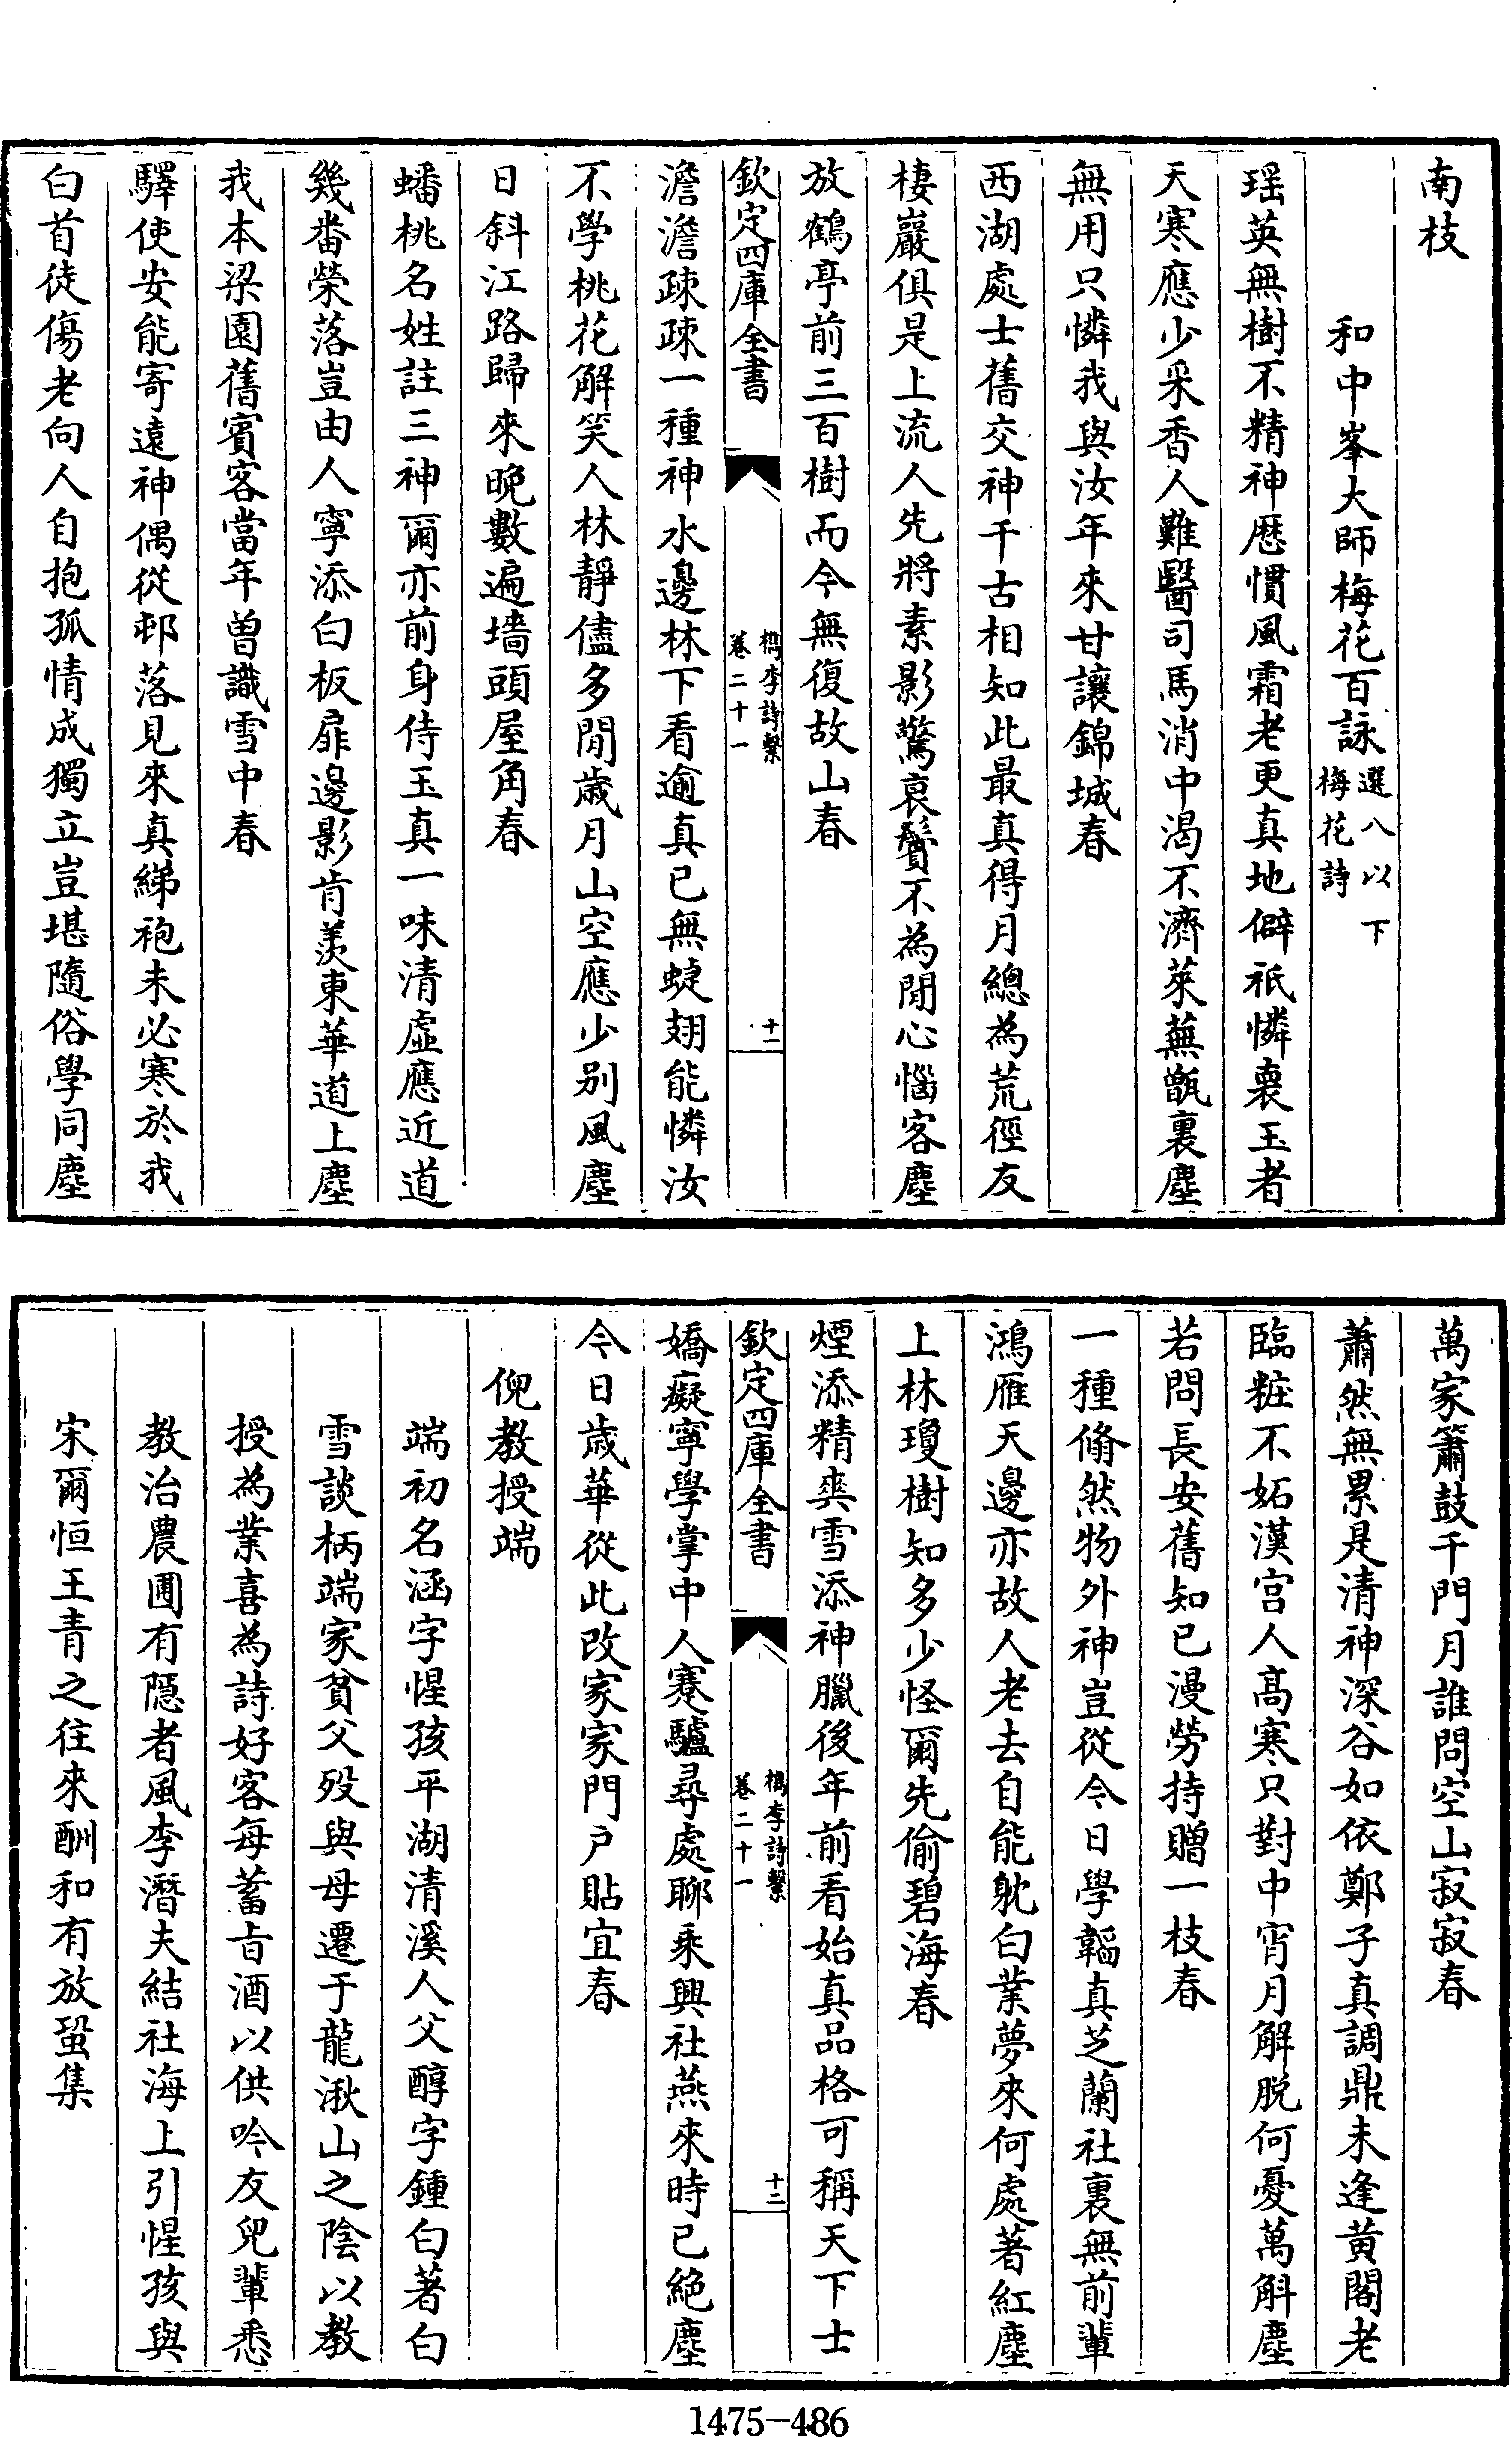 南枝
和中峯大師梅花百詠選八以下梅花詩
瑶英無樹不精神歴慣風霜老更真地僻祇憐裹玉者
天寒應少采香人難醫司馬消中渴不濟萊蕪甑裏塵
無用只憐我與汝年來甘讓錦城春
西湖處士舊交神千古相知此最真得月總為荒徑友
棲巖俱是上流人先將素影驚哀鬢不為閒心惱客塵
放鶴亭前三百樹而今無復故山春
欽定四庫全書
檇李詩繫
卷二十一
十一
澹澹疎疎一種神水邊林下看逾真已無蜨翅能憐汝
不學桃花解笑人林靜儘多閒歲月山空應少别風塵
日斜江路歸來晚數遍墻頭屋角春
蟠桃名姓註三神爾亦前身侍玉真一味清虛應近道
幾番榮落豈由人寧添白板扉邊影肯羡東華道上塵
我本梁園舊賓客當年曽識雪中春
驛使安能寄遠神偶從邨落見來真綈袍未必寒於我
白首徒傷老向人自抱孤情成獨立豈堪隨俗學同塵
萬家簫鼓千門月誰問空山寂寂春
蕭然無累是清神深谷如依鄭子真調鼎未逢黄閣老
臨粧不妬漢宫人髙寒只對中宵月解脱何憂萬斛塵
若問長安舊知已漫勞持贈一枝春
一種翛然物外神豈從今日學韜真芝蘭社裏無前輩
鴻雁天邊亦故人老去自能躭白業夢來何處著紅塵
上林瓊樹知多少怪爾先偷碧海春
煙添精爽雪添神臘後年前看始真品格可稱天下士
欽定四庫全書
檇李詩繫
卷二十一
十二
嬌癡寧學掌中人蹇驢尋處聊乘興社燕來時已絶塵
今日歲華從此改家家門户貼宜春
倪教授端
端初名涵字惺孩平湖清溪人父醇字鍾白著白
雪談柄端家貧父歿與母遷于龍湫山之陰以教
授為業喜為詩好客每蓄㫖酒以供吟友兒輩悉
教治農圃有隠者風李潛夫結社海上引惺孩與
宋爾恒王青之往來酬和有放蛩集
1475-486